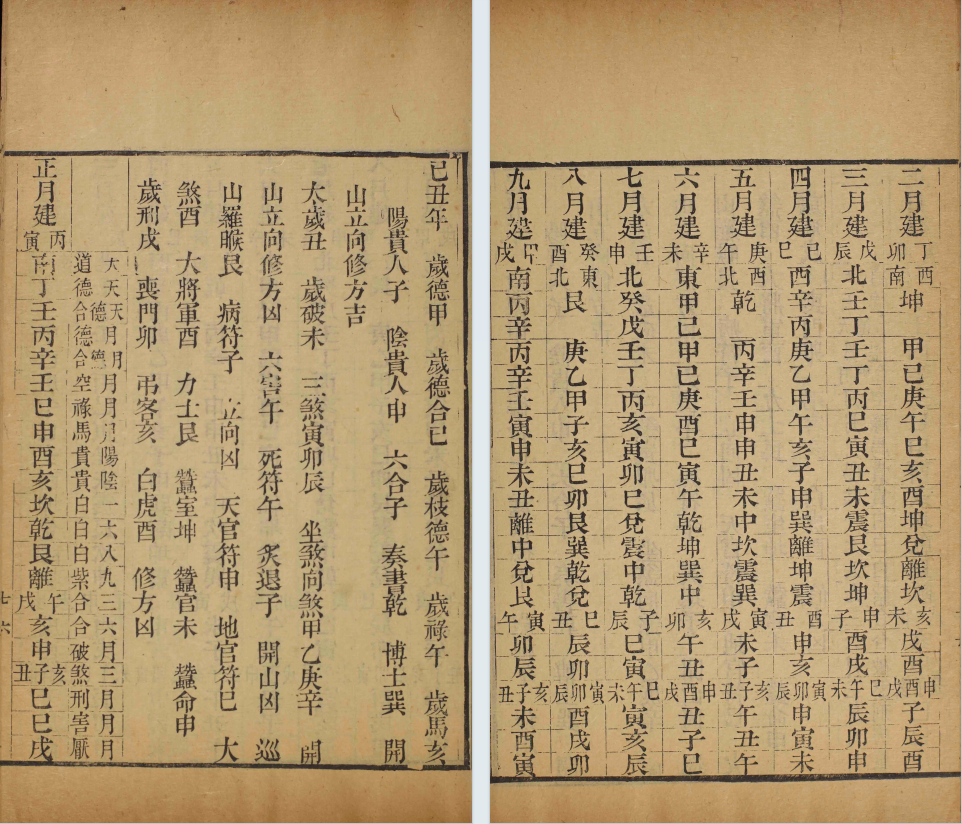 己丑年 歲德甲 歲德合己 歲枝德午 歲祿午 歲馬亥
陽貴人子 陰貴人申 六合子 奏書乾 博士巽 開
山立向修方吉
太歲丑 歲破未 三煞寅卯辰 坐煞向煞甲乙庚辛 開
山立向修方凶 六害午 死符午 炙退子 開山凶 巡
山羅睺艮 病符子 立向凶 天官符申 地官符巳 大
煞酉 大將軍酉 力士艮 蠶室坤 蠶官未 蠶命申
歲刑戌 喪門卯 弔客亥 白虎酉 修方凶
天道 天德 天德合 月德 月德合 月空 月祿 月馬 陽貴 陰貴 一白 六白 八白 九紫 三合 六合 月破 三煞 月刑 月害 月厭
正月建丙寅 南丁壬丙辛壬巳申酉亥坎乾艮離午戌亥申亥子丑巳巳戌
七六
二月建丁卯 西南坤 甲己庚午巳亥酉坤兌離坎亥未戌酉申酉戌子辰酉
三月建戊辰 北壬丁壬丁丙巳寅丑未震艮坎坤申子酉戌巳午未辰卯申
四月建己巳 西辛丙庚乙甲午亥子申巽離坤震酉丑申亥寅卯辰申寅未
五月建庚午 西北乾 丙辛壬申申丑未中坎震巽寅戌未子亥子丑午丑午
六月建辛未 東甲己甲己庚酉巳寅午乾坤巽中亥卯午丑申酉戌丑子巳
七月建壬申 北癸戊壬丁丙亥寅卯巳兌震中乾子辰巳寅巳午未寅亥辰
八月建癸酉 東北艮 庚乙甲子亥巳卯艮巽乾兌巳丑辰卯寅卯辰酉戌卯
九月建甲戌 南丙辛丙辛壬寅申未丑離中兌艮寅午卯辰亥子丑未酉寅